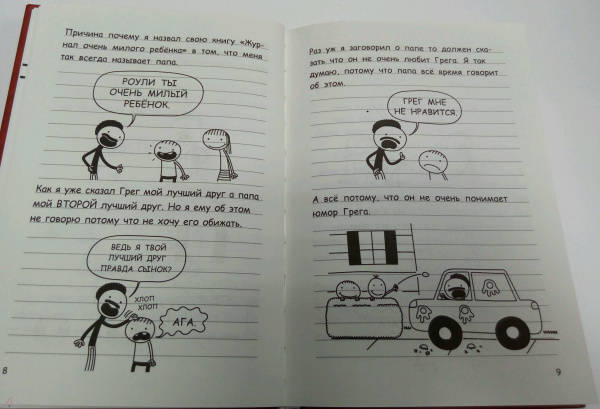 Причина почему я назвал свою книгу «Жур-
нал очень милого ребёнка» в том, что меня
так всегда называет папа.
РОУЛИ ТЫ
ОЧЕНЬ МИЛЫЙ
РЕБЁНОК.
Как я уже сказал Грег мой лучший друг а папа
мой ВТОРОЙ лучший друг. Но я ему об этом
не говорю потому что не хочу его обижать.
ВЕДЬ Я ТВОЙ
ЛУЧШИЙ ДРУГ
ПРАВДА СЫНОК?
ХЛОП
ХЛОП
АГА.
8
Раз уж я заговорил о папе то должен ска-
зать что он не очень любит Грега. Я так
думаю, потому что папа всё время говорит
об этом.
ГРЕГ МНЕ
НЕ НРАВИТСЯ.
А всё потому, что он не очень понимает
юмор Грега.
9